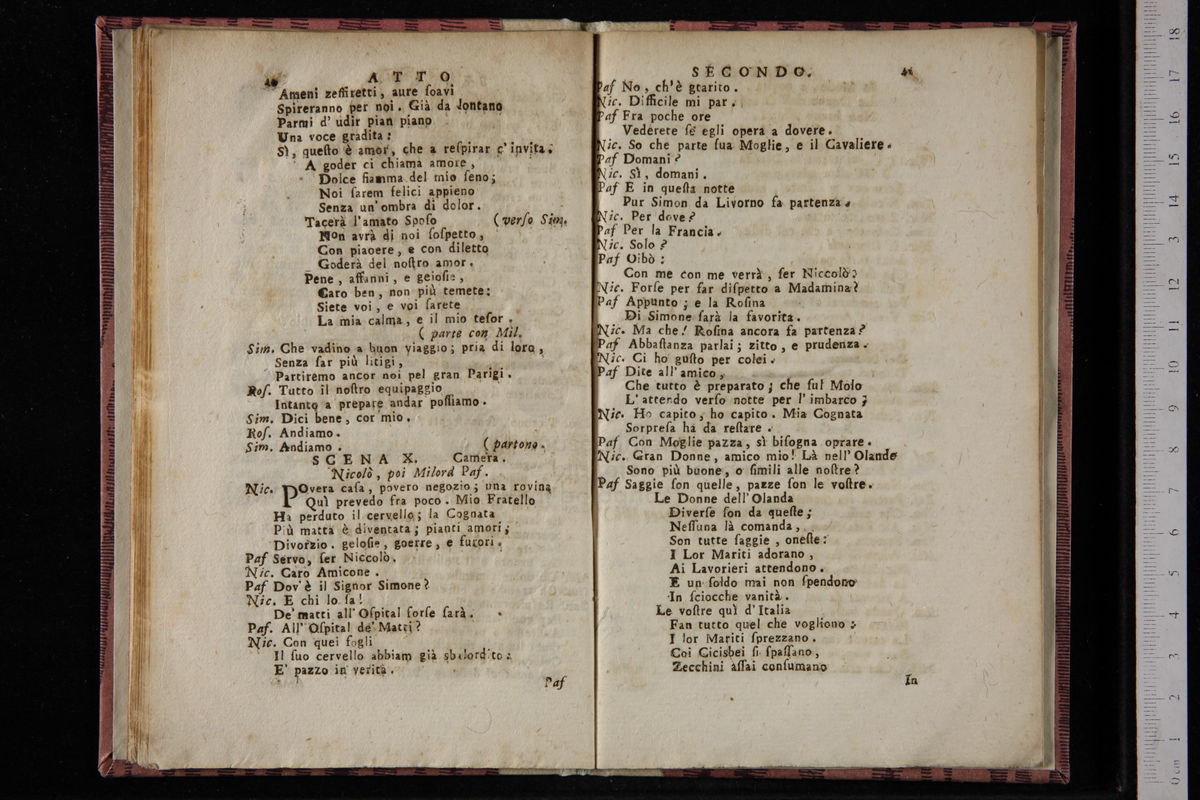 40 ATTO
Ameni zeffiretti, aure ſoavi
Spireranno per noi. Già da lontano
Parmi d' udir pian piano
Una voce gradita:
Sì, queſto è amor, che a reſpirar c' invita.
A goder ci chiama amore,
Dolce fiamma del mio ſeno;
Noi ſarem felici appieno
Senza un' ombra di dolor.
Tacerà l'amato Spoſo (verſo Sim.
Non avrà di noi ſoſpetto,
Con piacere, e con diletto
Goderà del noſtro amor.
Pene, affanni, e geloſie,
Caro ben, non più temete:
Siete voi, e voi ſarete
La mia calma, e il mio teſor.
(parte con Mil.
Sim. Che vadino a buon viaggio; pria di loro,
Senza far più litigi,
Partiremo ancor noi pel gran Parigi.
Roſ. Tutto il noſtro equipaggio
Intanto a prepare andar poſſiamo.
Sim. Dici bene, cor mio.
Roſ. Andiamo.
Sim. Andiamo. (partono.
SCENA X. Camera.
Nicolò, poi Milord Paf.
Nic. POvera caſa, povero negozio; una rovina
Quì prevedo fra poco. Mio Fratello
Ha perduto il cervello; la Cognata
Più matta è diventata; pianti amori;
Divorzio. geloſie, goerre, e furori.
Paf Servo, ſer Niccolò.
Nic. Caro Amicone.
Paf Dov'è il Signor Simone?
Nic. E chi lo ſa!
De' matti all' Oſpital forſe ſarà.
Paf. All' Oſpital de' Matti?
Nic. Con quei fogli
Il ſuo cervello abbiam già sbalordito:
E' pazzo in verità.
Paf
SECONDO. 41
Paf No, ch'è gtarito.
Nic. Difficile mi par.
Paf Fra poche ore
Vederete ſe egli opera a dovere.
Nic. So che parte ſua Moglie, e il Cavaliere.
Paf Domani?
Nic. Sì, domani.
Paf E in queſta notte
Pur Simon da Livorno fa partenza.
Nic. Per dove?
Paf Per la Francia.
Nic. Solo?
Paf Oibò:
Con me con me verrà, ſer Niccolò?
Nic. Forſe per far diſpetto a Madamina?
Paf Appunto; e la Roſina
Di Simone ſarà la favorita.
Nic. Ma che! Roſina ancora fa partenza?
Paf Abbaſtanza parlai; zitto, e prudenza.
Nic. Ci ho guſto per colei.
Paf Dite all' amico,
Che tutto è preparato; che ſul Molo
L' attendo verſo notte per l' imbarco;
Nic. Ho capito, ho capito. Mia Cognata
Sorpreſa ha da reſtare.
Paf Con Moglie pazza, sì biſogna oprare.
Nic. Gran Donne, amico mio! Là nell' Olande
Sono più buone, o ſimili alle noſtre?
Paf Saggie ſon quelle, pazze ſon le voſtre.
Le Donne dell' Olanda
Diverſe ſon da queſte;
Neſſuna là comanda,
Son tutte ſaggie, oneſte:
I Lor Mariti adorano,
Ai Lavorieri attendono.
E un ſoldo mai non ſpendono
In ſciocche vanità.
Le voſtre quì d' Italia
Fan tutto quel che vogliono:
I lor Mariti ſprezzano.
Coi Cicisbei ſi ſpaſſano,
Zecchini aſſai conſumano
In
0 cm 1 2 3 4 5 6 7 8 9 10 11 12 13 14 15 16 17 18